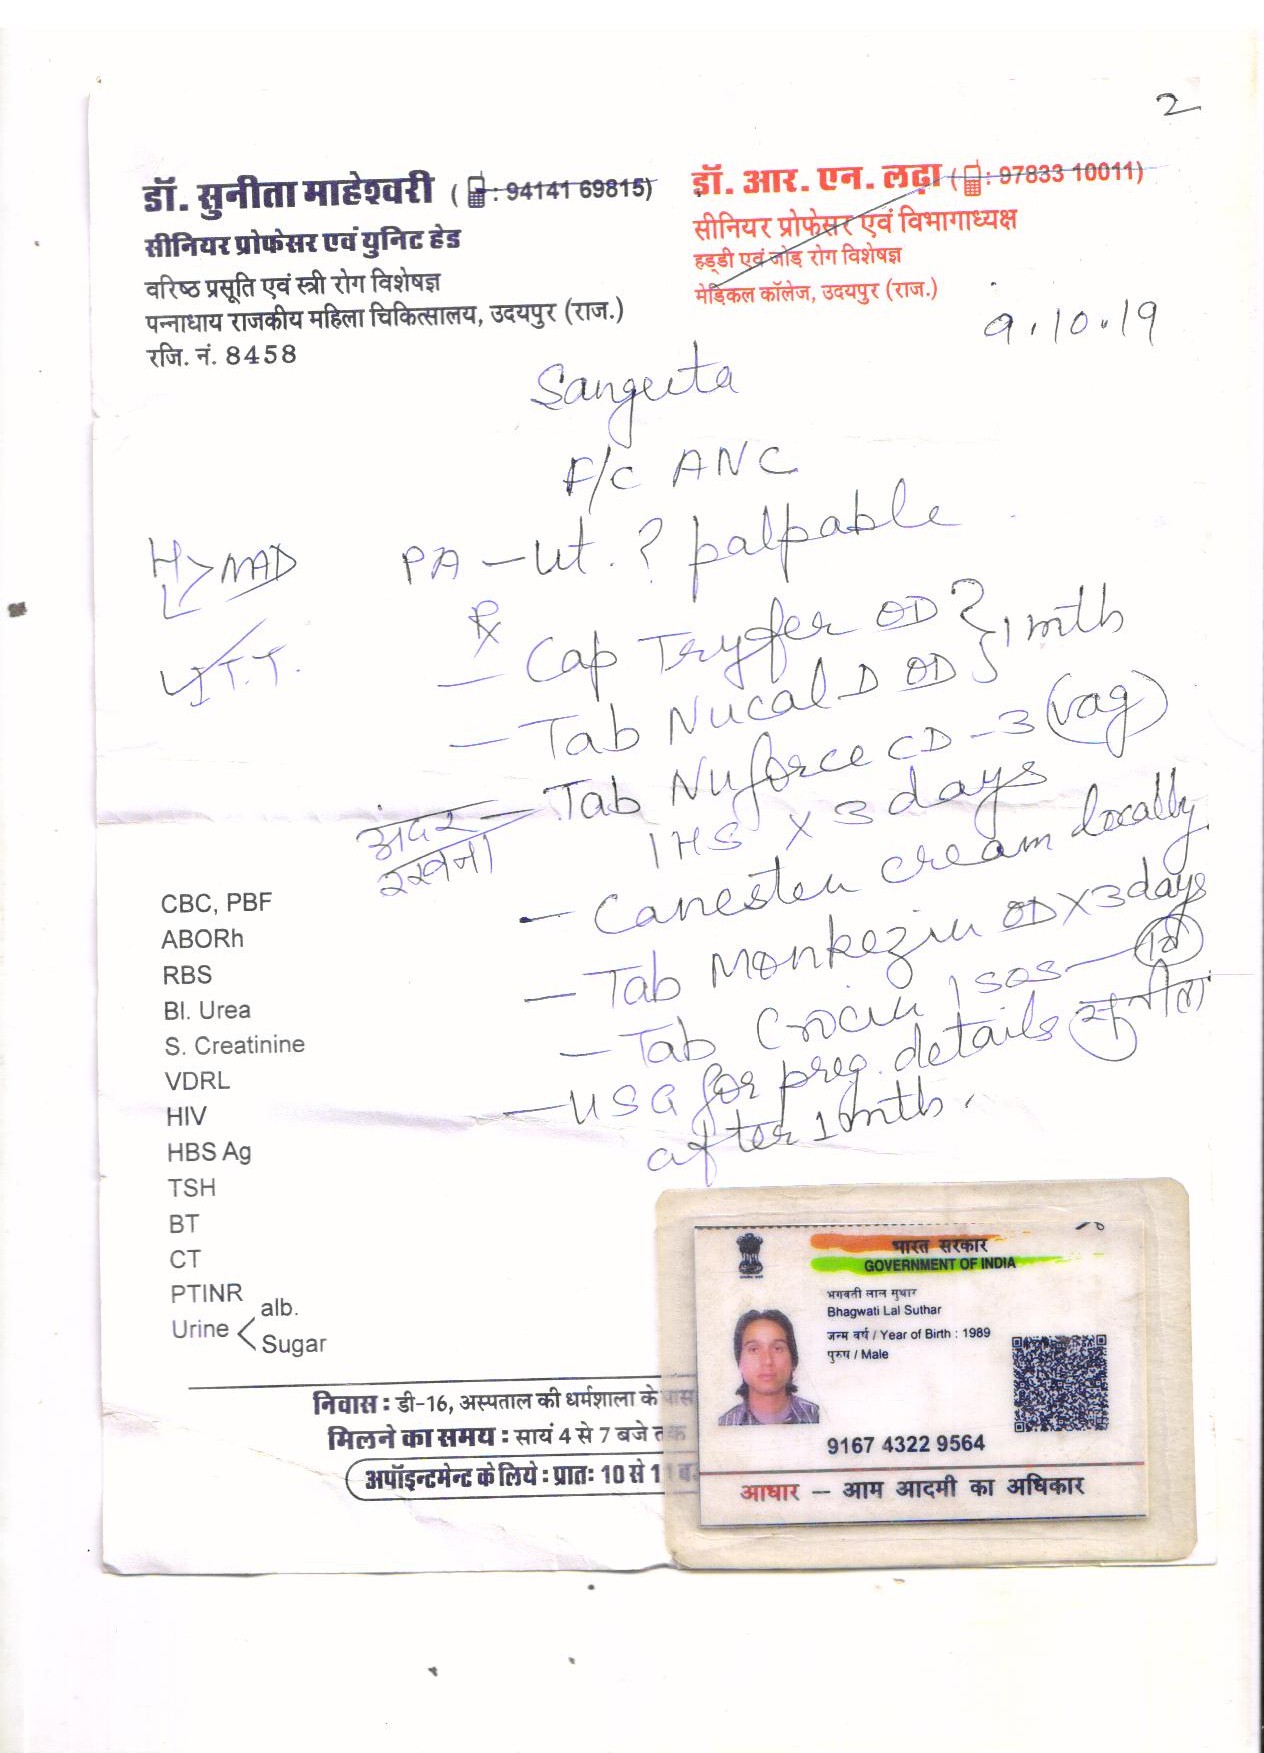 2
डॉ. सुनीता माहेश्वरी ( : 94141 69815)
सीनियर प्रोफेसर एवं युनिट हेड
वरिष्ठ प्रसूति एवं स्त्री रोग विशेषज्ञ
पन्नाधाय राजकीय महिला चिकित्सालय, उदयपुर (राज.)
रजि. नं. 8458
डॉ. आर. एन. लढ़ा ( : 97833 10011)
सीनियर प्रोफेसर एवं विभागाध्यक्ष
हड्डी एवं जोड़ रोग विशेषज्ञ
मेडिकल कॉलेज, उदयपुर (राज.)
9.10.19
Sangeeta
F/C ANC
H
L > NAD
PA - ut. ? palpable
I.T.T.
Rx
- Cap Tryfer OD } 1 mth
- Tab Nucal D OD
- Tab Nuforce CD-3 (vag)
अंदर रखना
1 HS x 3 days
- Canesten cream locally
- Tab Monkezin OD x 3 days
- Tab Crocin 1 SOS
- USG for preg. details
after 1 mth.
सुनीता
CBC, PBF
ABORh
RBS
Bl. Urea
S. Creatinine
VDRL
HIV
HBS Ag
TSH
BT
CT
PTINR
Urine < alb.
Sugar
निवास : डी-16, अस्पताल की धर्मशाला के पास
मिलने का समय : सायं 4 से 7 बजे तक
अपॉइन्टमेन्ट के लिये : प्रातः 10 से 11 ब
भारत सरकार
GOVERNMENT OF INDIA
भगवती लाल सुथार
Bhagwati Lal Suthar
जन्म वर्ष / Year of Birth : 1989
पुरुष / Male
9167 4322 9564
आधार – आम आदमी का अधिकार